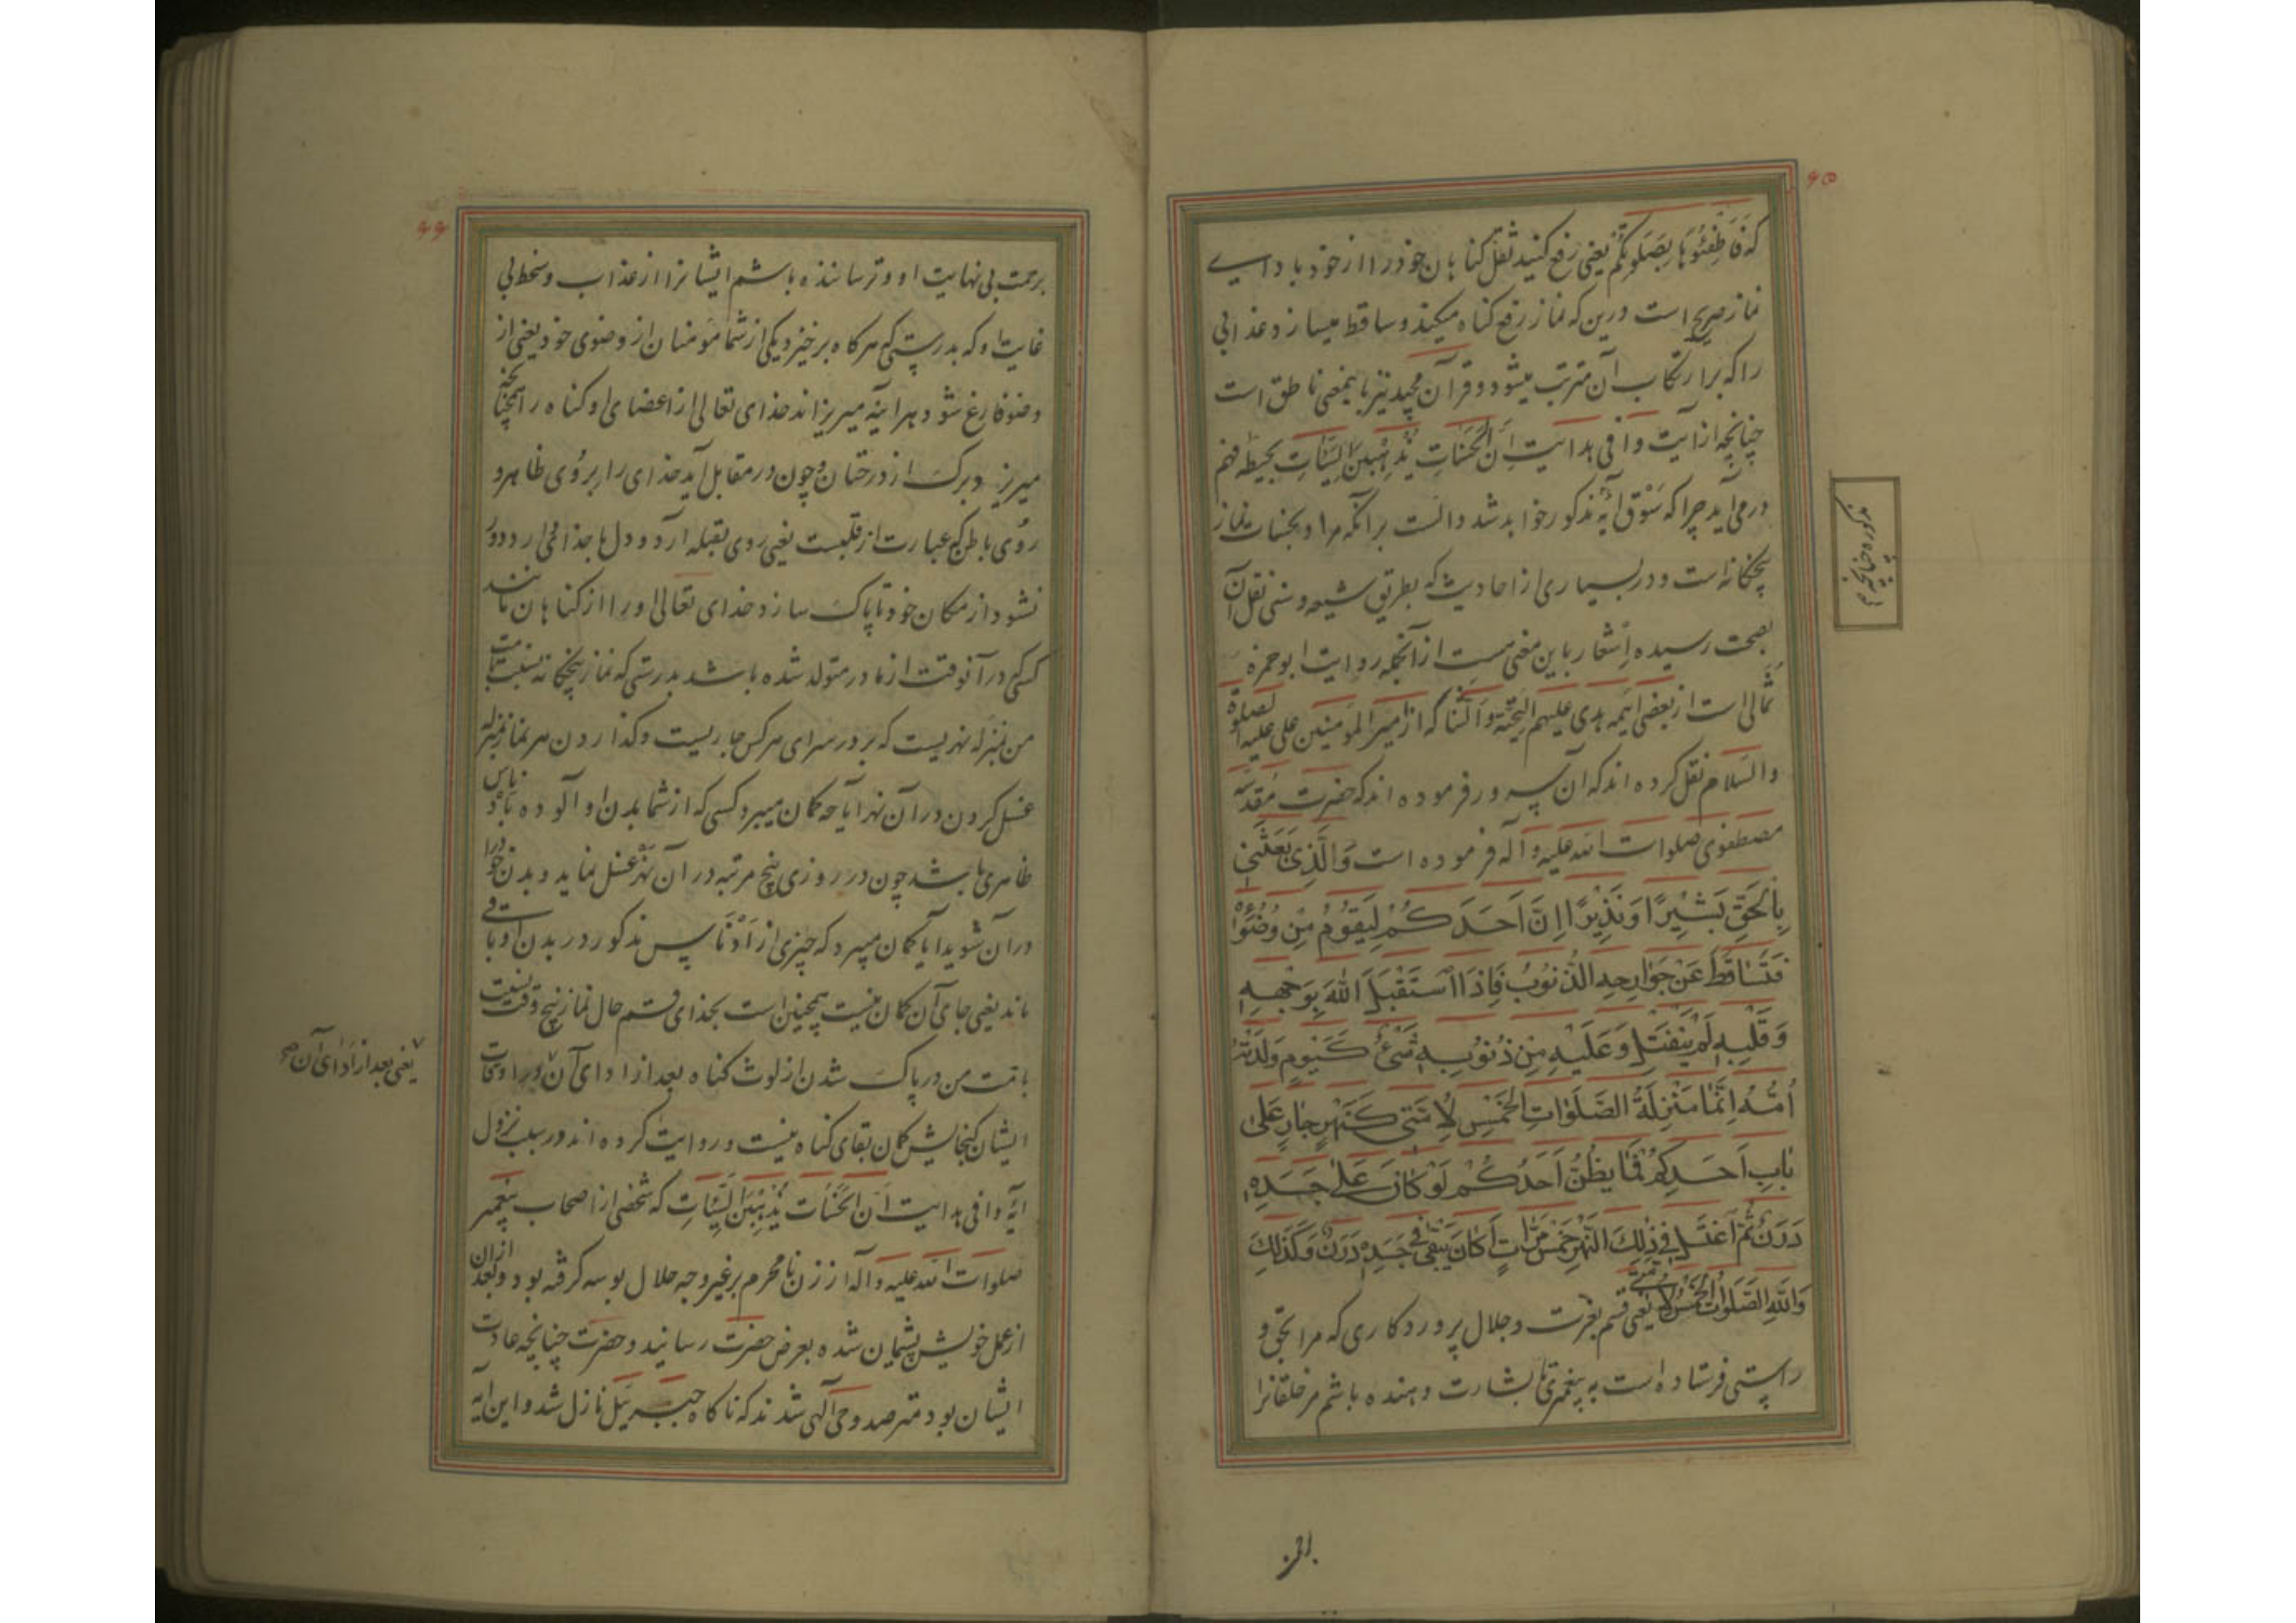 ۶۵
که فَاَطْفِئُوهَا بِصَلَوتِکُمْ یعنی رفع کنید ثقل کناهان خود را از خود باداے
نماز صریح است درین که نماز رفع کناه میکند و ساقط میسازد عذابی
را که بر ارتکاب آن مترتب میشود و قرآن مجید نیز باینمعنی ناطق است
چنانچه از آیت وافی هدایت اِنَّ الْحَسَنَاتِ یُذْهِبْنَ السَّیِّئَاتِ بحیطه فهم
درمی آید چرا که سَوْق آیه مذکور خواهد شد دانست بر آنکه مراد بحسنات نماز
پنجکانه است و در بسیاری از احادیث که بطریق شیعه و سنی نقل آن
بصحت رسیده اِشعار باین معنی هست از آنجمله روایت ابوحمزه
ثُمالی است از بعضی ایمه هدی علیهم التحیّة والثنا که از امیرالمؤمنین علی علیه الصلوة
والسلام نقل کرده اند که ان سرور فرموده اند که حضرت مقدّسه
مصطفوی صلوات الله علیه و آله فرموده است وَالَّذِی بَعَثَنِی
بِالْحَقِّ بَشِیرًا وَنَذِیرًا اِنَّ اَحَدَکُمْ لَیَقُومُ مِنْ وُضُوئِهِ
فَتَسَاقَطُ عَنْ جَوَارِحِهِ الذُّنُوبُ فَاِذَا اسْتَقْبَلَ اللّٰهَ بِوَجْهِهِ
وَقَلْبِهِ لَمْ یَنْفَتِلْ وَعَلَیْهِ مِنْ ذُنُوبِهِ شَیْءٌ کَیَوْمِ وَلَدَتْهُ
اُمُّهُ اِنَّمَا مَنْزِلَةُ الصَّلَوَاتِ الْخَمْسِ لِاُمَّتِی کَنَهْرٍ جَارٍ عَلٰی
بَابِ اَحَدِکُمْ فَمَا یَظُنُّ اَحَدُکُمْ لَوْ کَانَ عَلٰی جَسَدِهِ
دَرَنٌ ثُمَّ اغْتَسَلَ فِی ذٰلِکَ النَّهْرِ خَمْسَ مَرَّاتٍ اَکَانَ یَبْقٰی فِی جَسَدِهِ دَرَنٌ وَکَذٰلِکَ
وَاللّٰهِ الصَّلَوَاتُ الْخَمْسُ لِاُمَّتِی یعنی قسم بعزت و جلال پروردکاری که مرا بحق و
راستی فرستاده است به پیغمبری تا بشارت دهنده باشم مر خلقانرا
مذکوره چنانچه
برحمت
۶۶
برحمت بی نهایت او و ترساننده باشم ایشانرا از عذاب و سخط بی
غایت او که بدرستی که هرکاه برخیزد یکی از شما مؤمنان از وضوی خود یعنی از
وضو فارغ شود هرآینه میریزاند خدای تعالی از اعضای او کناه را همچنانچه
میریزد برک از درختان و چون در مقابل آید خدای را بروُی ظاهر و
روُی باطن که عبارت از قلبست یعنی روی بقبله آرد و دل با خدا می دارد دور
نشود از مکان خود تا پاک سازد خدای تعالی او را از کناهان مانند
کسی در آنوقت از مادر متولد شده باشد بدرستی که نماز پنجکانه نسبت بامّت
من بمنزله نهریست که بر در سرای هر کس جاریست و کذاردن هر نماز بمنزله
غسل کردن در آن نهر ایا چه کمان میبرد کسی که از شما بدن او آلوده بادناس
ظاهری باشد چون در روزی پنج مرتبه در آن نهر غسل نماید و بدن خود را
در آن شوید ایا کمان میبرد که چیزی از اَدْناس مذکور در بدن او باقی
ماند یعنی جای آن کمان نیست همچنین است بخدای قسم حال نماز پنج وقت نسبت
بامّت من در پاک شدن از لوث کناه بعد از ادای آن در اوقات
ایشان کنجایش کمان بقای کناه نیست و روایت کرده اند در سبب نزول
آیه وافی هدایت اِنَّ الْحَسَنَاتِ یُذْهِبْنَ السَّیِّئَاتِ که شخصی از اصحاب پیغمبر
صلوات الله علیه و آله از زن نامحرم بر غیر وجه حلال بوسه کرفته بود و بعد ازان
از عمل خویش پشیمان شده بعرض حضرت رسانید و حضرت چنانچه عادت
ایشان بود مترصد وحی الهی شدند که ناکاه جبرییل نازل شد و این آیه
یعنی بعد از ادای آن صح